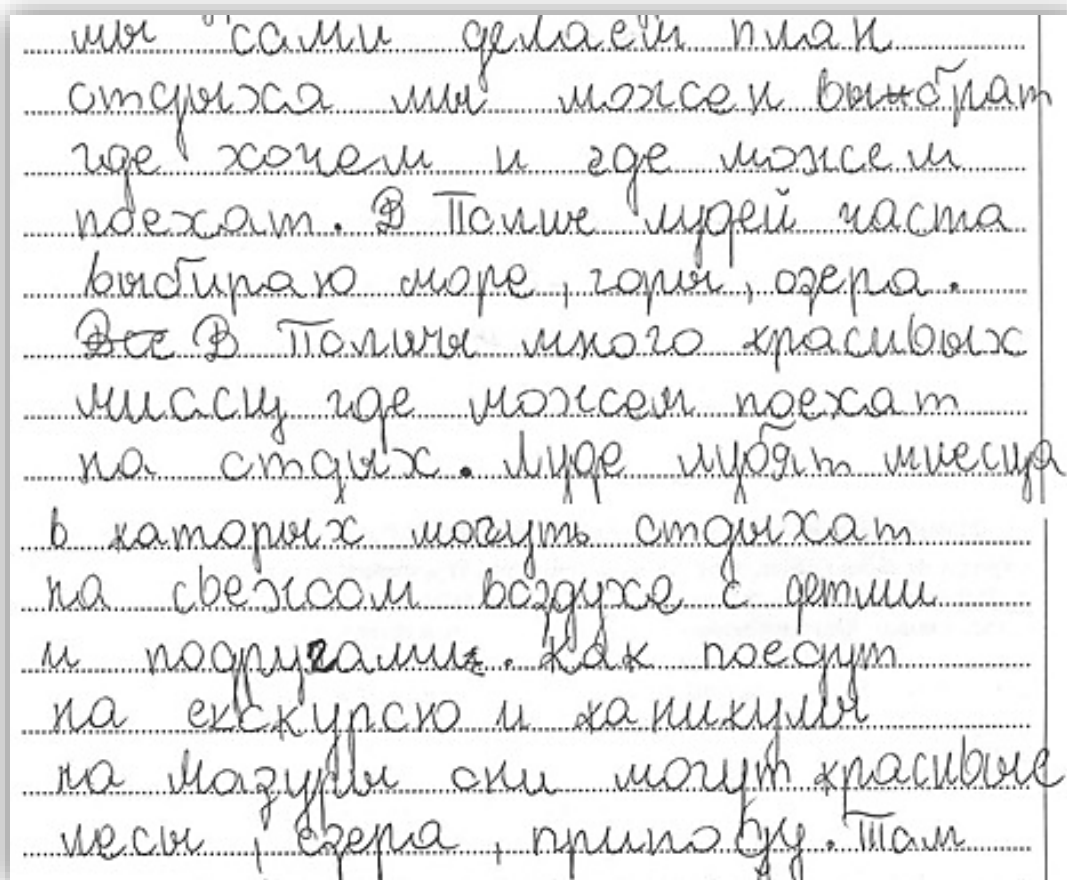 мы сами делаем план
отдыха мы можен выбрат
где хочем и где можем
поехат. В Полше лудей часта
выбираю море, горы, озера.
Все В Полшчы много красивых
миссц где можем поехат
на отдых. Луде лубят миесца
в каторых могуть отдыхат
на свежом воздухе с детми
и подругами. Как поедут
на екскурсю и каникулы
на Мазуры они могут красивые
лесы, езера, природу. Там